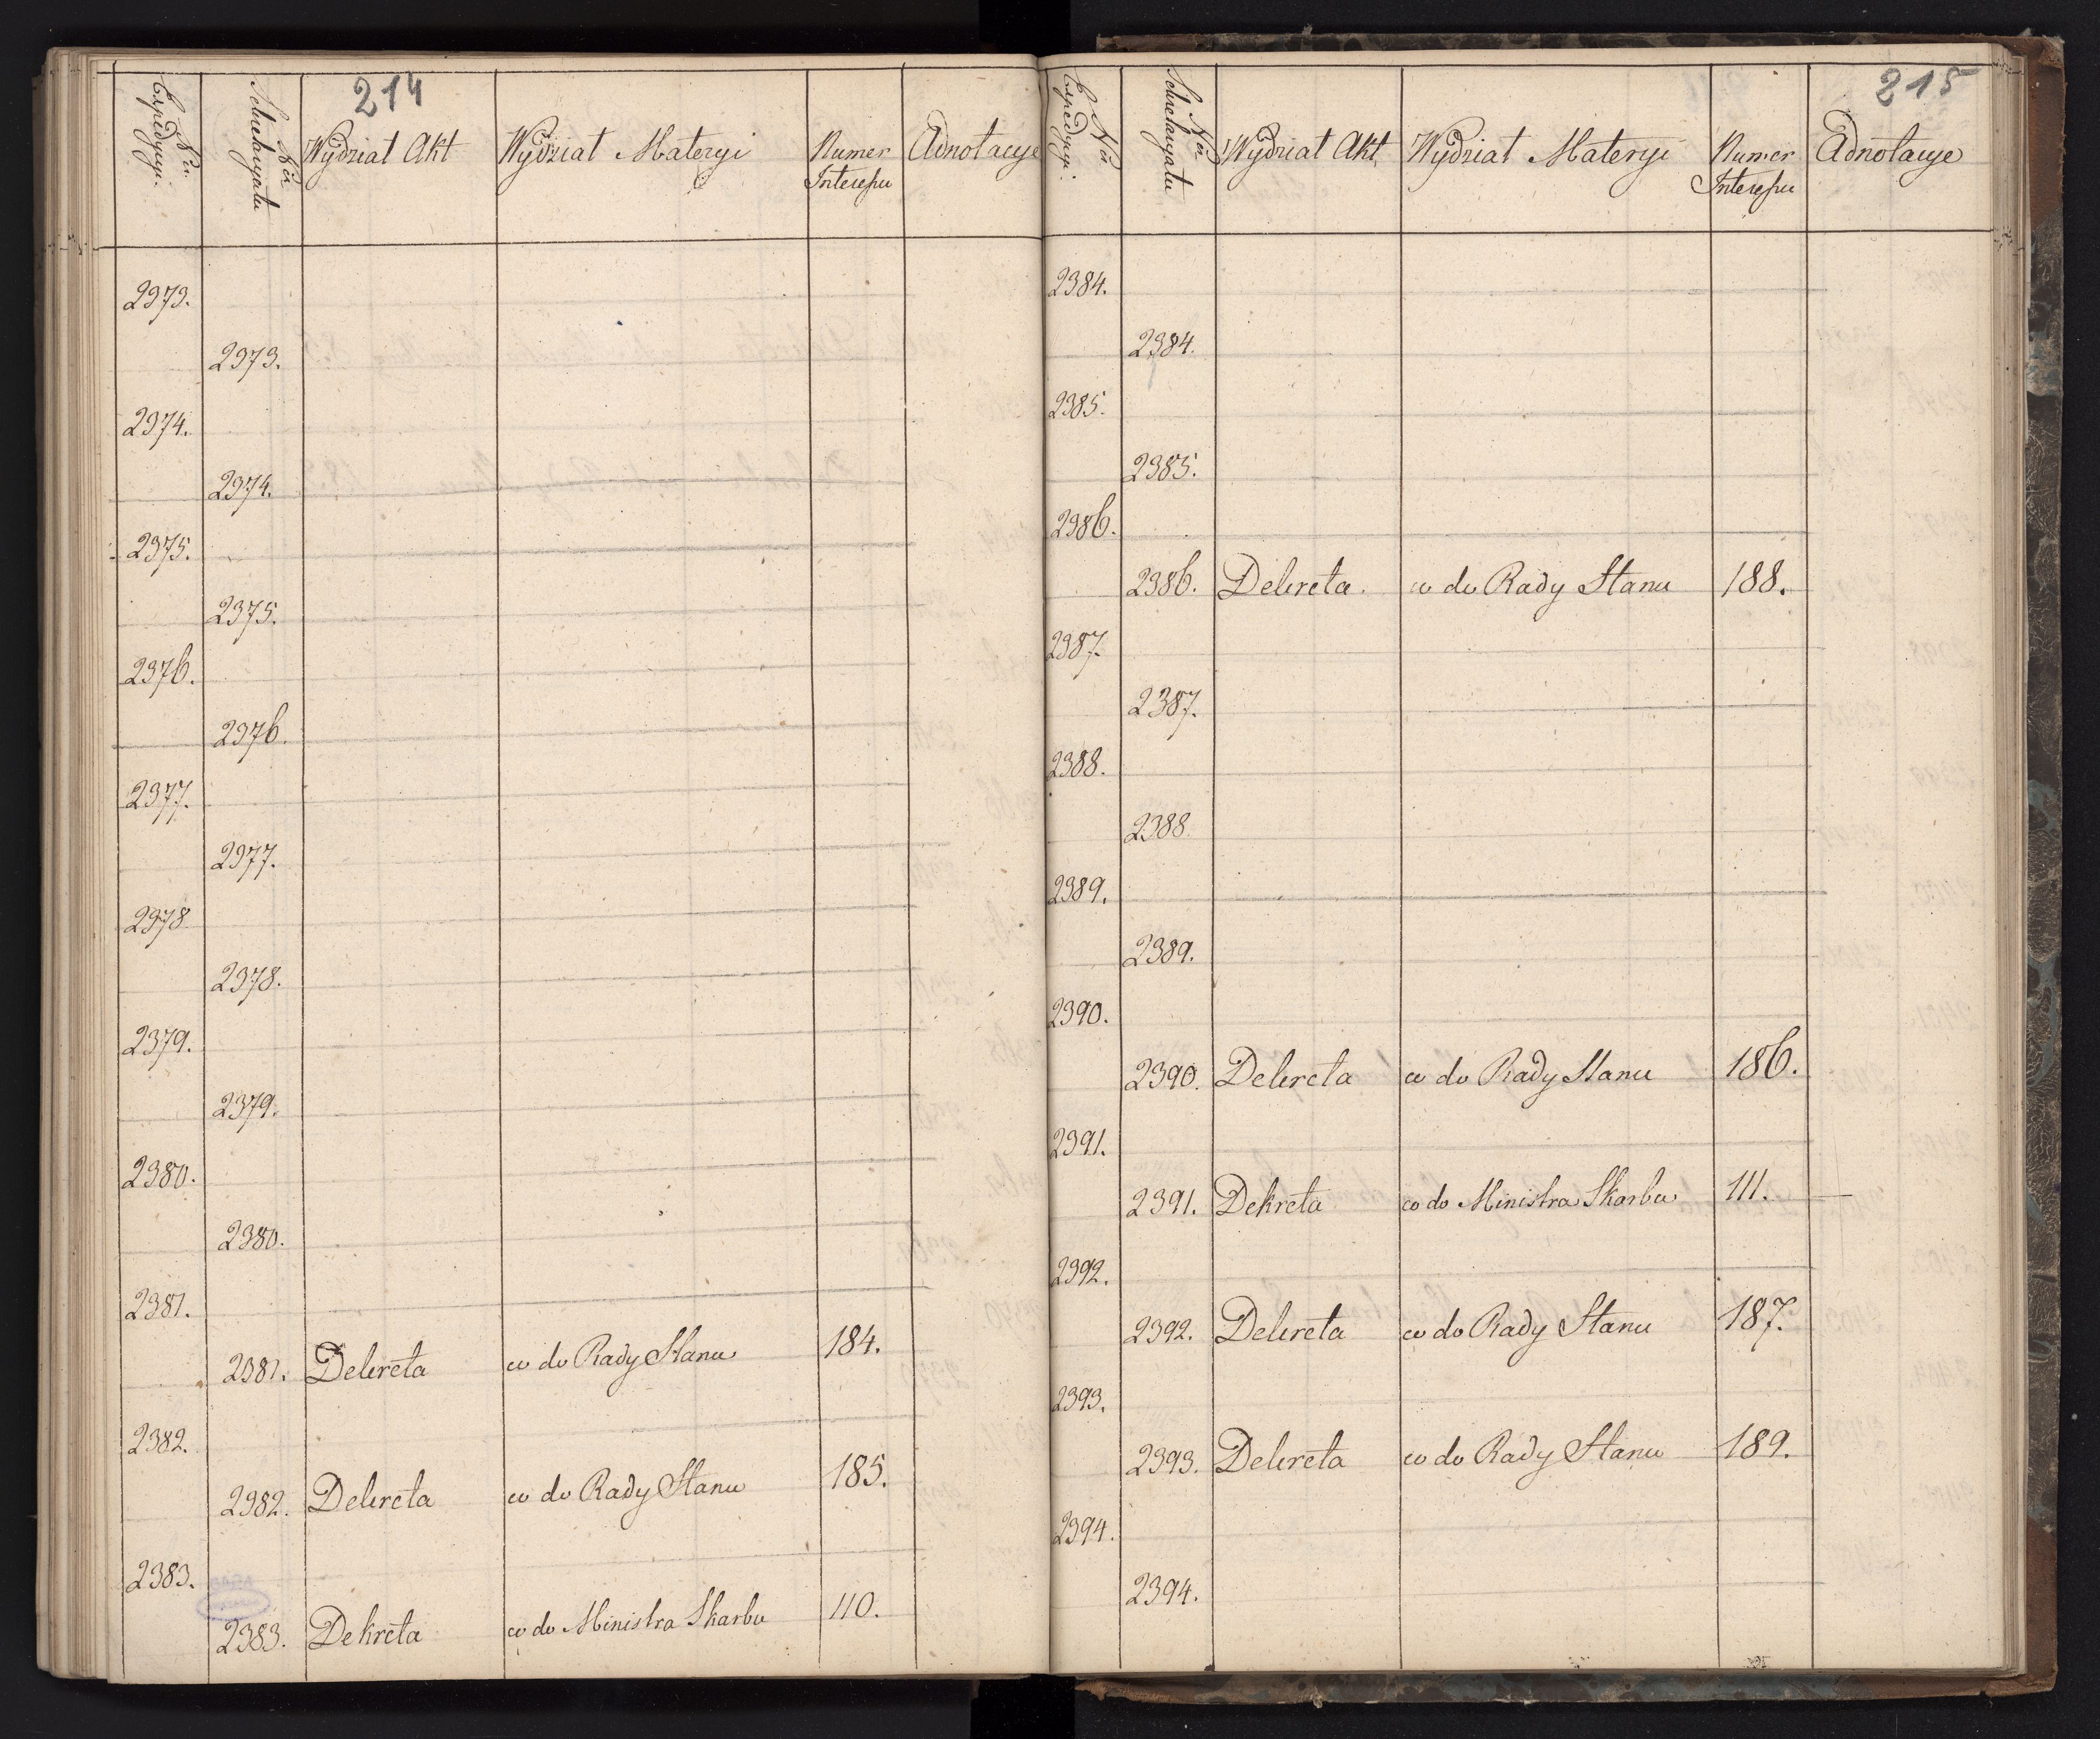 214
Nr Expedycyi.
Nr Sekretaryatu
Wydział Akt
Wydział Materyi
Numer Interessu
Adnotacye
2373.
2373.
2374.
2374.
2375.
2375.
2376.
2376.
2377.
2377.
2378
2378.
2379.
2379.
2380.
2380.
2381.
2381. Dekreta co do Rady Stanu 184.
2382.
2382. Dekreta co do Rady Stanu 185.
2383.
2383. Dekreta co do Ministra Skarbu 110.
215
Nr Expedycyi.
Nr Sekretaryatu
Wydział Akt
Wydział Materyi
Numer Interessu
Adnotacye
2384.
2384.
2385.
2385.
2386.
2386. Dekreta. co do Rady Stanu 188.
2387.
2387.
2388.
2388
2389.
2389.
2390.
2390. Dekreta co do Rady Stanu 186.
2391.
2391. Dekreta co do Ministra Skarbu 111.
2392.
2392. Dekreta co do Rady Stanu 187.
2393.
2393. Dekreta co do Rady Stanu 189.
2394.
2394.